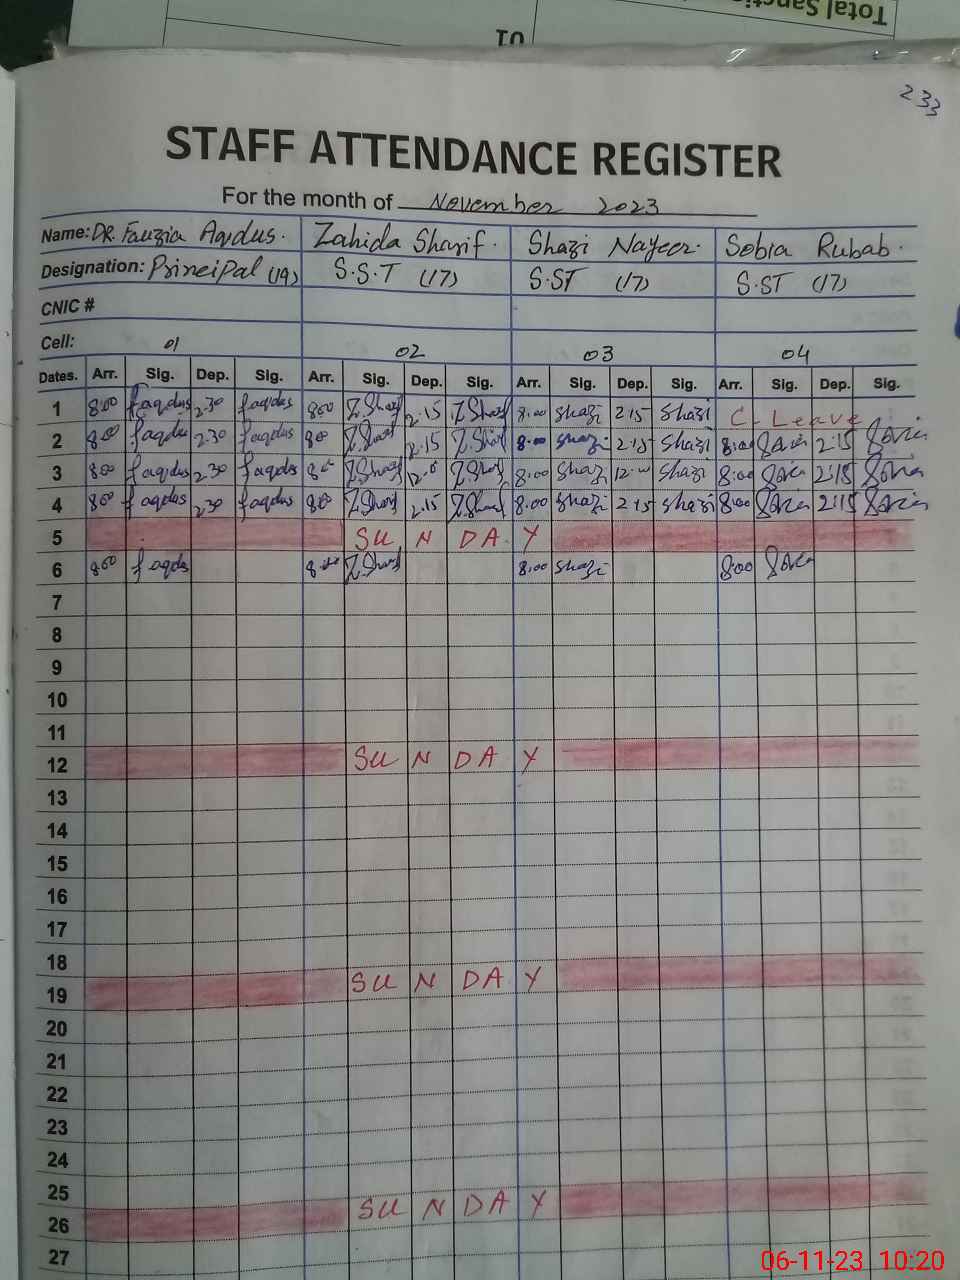 Total Sancti
01
233
STAFF ATTENDANCE REGISTER
For the month of November 2023
Name: DR. Fauzia Aqdus. Zahida Sharif. Shazi Nayeer. Sobia Rubab.
Designation: Principal (19) S.S.T (17) S.ST (17) S.ST (17)
CNIC #
Cell: 01 02 03 04
Dates. Arr. Sig. Dep. Sig. Arr. Sig. Dep. Sig. Arr. Sig. Dep. Sig. Arr. Sig. Dep. Sig.
1 800 faqdus 2.30 faqdus 800 Z.Sharif 2.15 Z.Sharif 8:00 Shazi 2:15 Shazi C-Leave
2 800 faqdus 2.30 faqdus 800 Z.Sharif 2.15 Z.Sharif 8:00 Shazi 2:15 Shazi 8:00 Sobia 2:15 Sobia
3 800 faqdus 2.30 faqdus Z.Sharif Z.Sharif 8:00 Shazi 12:00 Shazi 8:00 Sobia 2:15 Sobia
4 800 faqdus 2.30 faqdus 800 Z.Sharif 2.15 Z.Sharif 8.00 Shazi 2:15 Shazi 8:00 Sobia 2:15 Sobia
5 SUNDAY
6 800 faqdus 8:00 Z.Sharif 8:00 Shazi 8:00 Sobia
7
8
9
10
11
12 SUNDAY
13
14
15
16
17
18
19 SUNDAY
20
21
22
23
24
25
26 SUNDAY
27
06-11-23 10:20